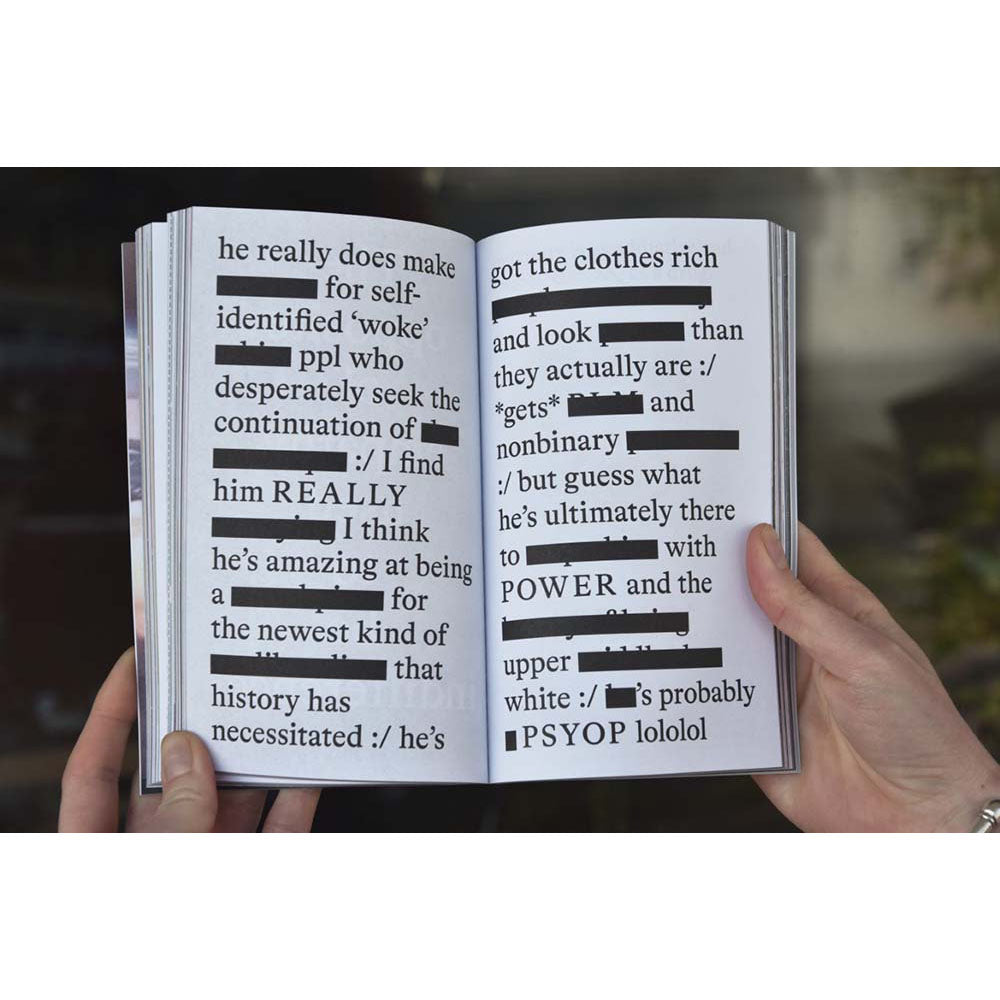 he really does make
for self-
identified ‘woke’
ppl who
desperately seek the
continuation of
:/ I find
him REALLY
I think
he’s amazing at being
a for
the newest kind of
that
history has
necessitated :/ he’s
got the clothes rich
and look than
they actually are :/
*gets* and
nonbinary
:/ but guess what
he’s ultimately there
to with
POWER and the
upper
white :/ ’s probably
PSYOP lololol